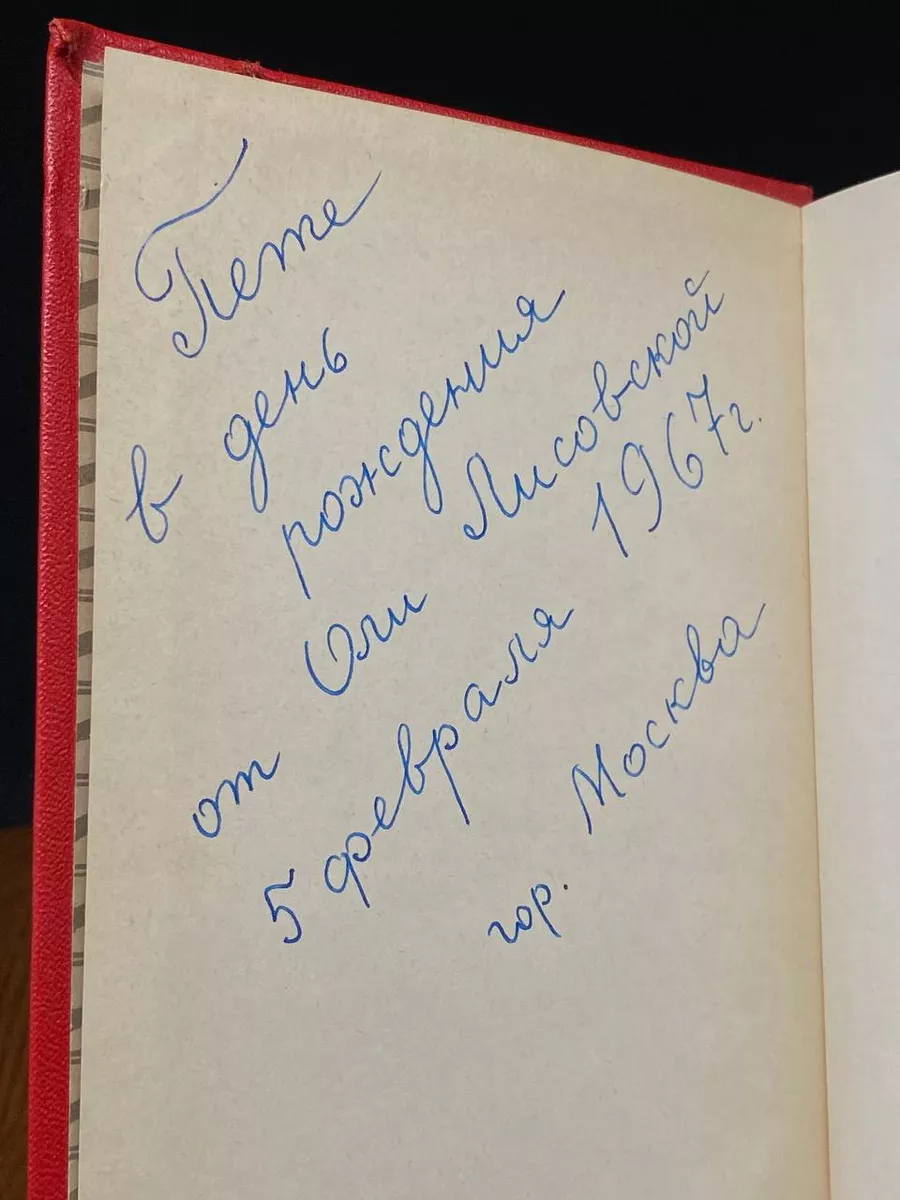 Пете
в день
рождения
от Оли Лисовской
5 февраля 1967г.
гор. Москва